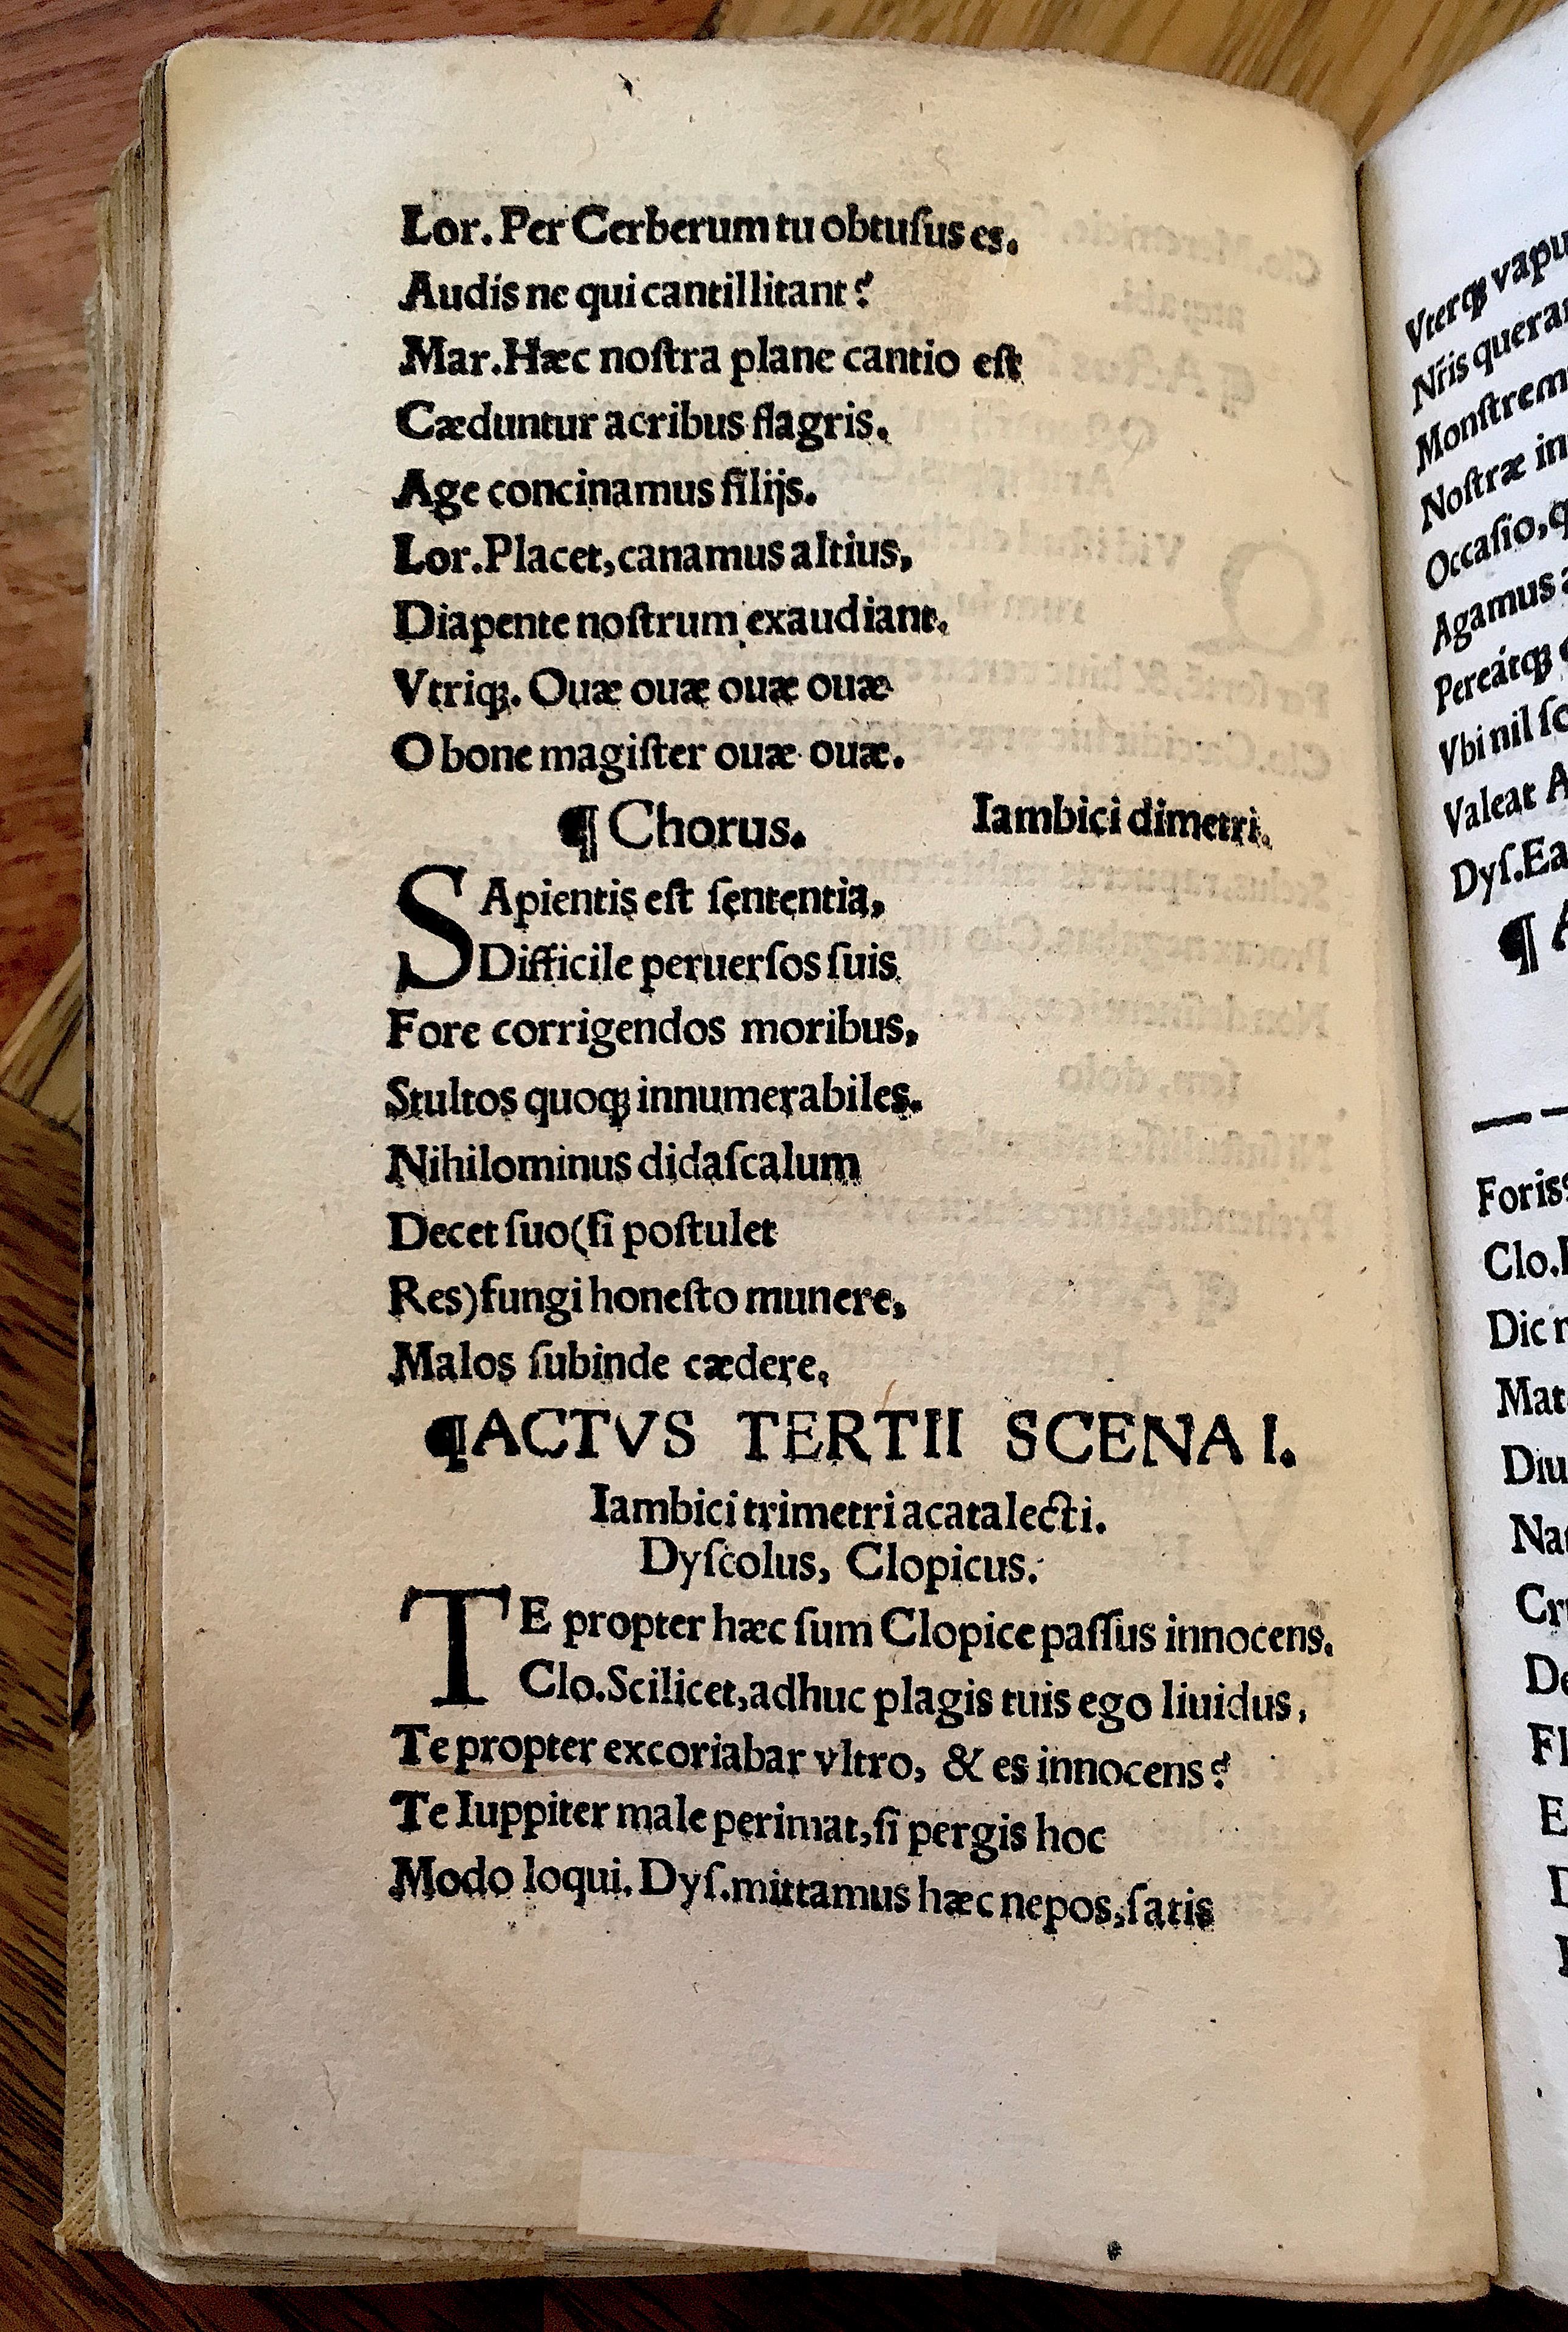 Lor. Per Cerberum tu obtuſus es.
Audis ne qui cantillitant?
Mar. Hæc noſtra plane cantio eſt
Cæduntur acribus flagris.
Age concinamus filijs.
Lor. Placet, canamus altius,
Diapente noſtrum exaudiant.
Vtriqꝫ. Ouæ ouæ ouæ ouæ
O bone magiſter ouæ ouæ.
¶ Chorus. Iambici dimetri.
SApientis eſt ſententia,
Difficile peruerſos ſuis
Fore corrigendos moribus,
Stultos quoqꝫ innumerabiles.
Nihilominus didaſcalum
Decet ſuo (ſi poſtulet
Res) fungi honeſto munere,
Malos ſubinde cædere.
¶ACTVS TERTII SCENA I.
Iambici trimetri acatalecti.
Dyſcolus, Clopicus.
TE propter hæc ſum Clopice paſſus innocens.
Clo. Scilicet, adhuc plagis tuis ego liuidus,
Te propter excoriabar vltro, & es innocens?
Te Iuppiter male perimat, ſi pergis hoc
Modo loqui. Dyſ. mittamus hæc nepos, ſatis
Vterqꝫ
Nr̃is
Monſtrem
Noſtræ in
Occaſio,
Agamus
Pereátqꝫ
Vbi nil
Valeat A
Dyſ. Ea
¶ A
Foris
Clo.
Dic
Mat
Diu
Na
Cr
De
Fl
E